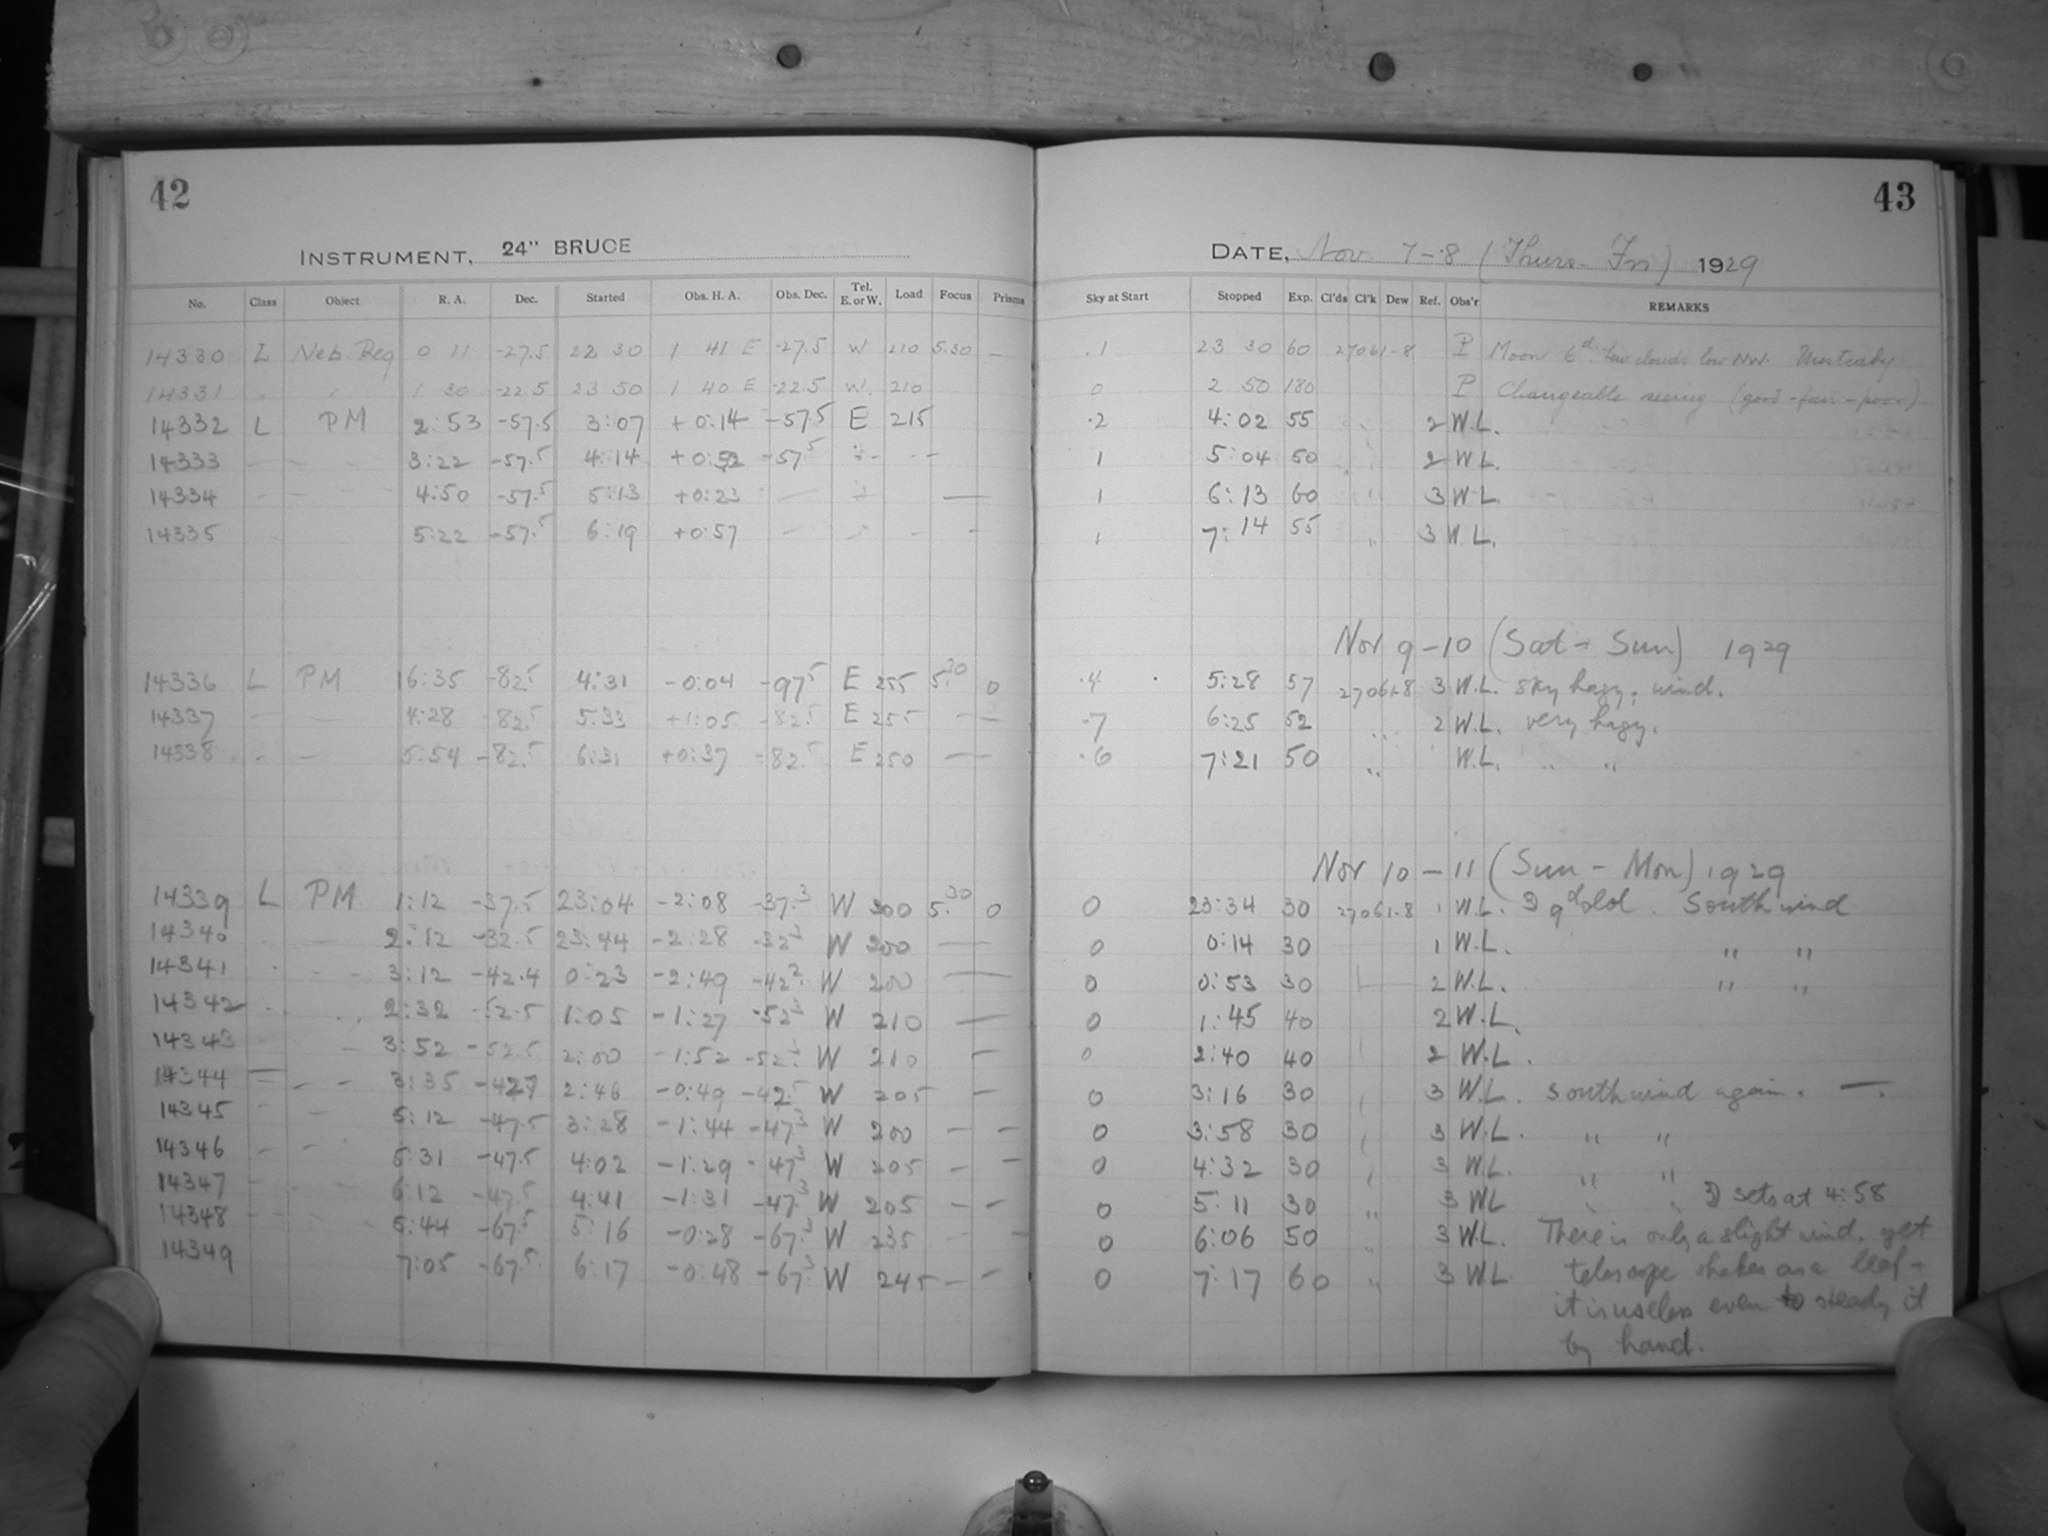 42
43
INSTRUMENT, 24" BRUCE
DATE, Nov. 7-8 (Thurs-Fri) 1929
No. Class Object R. A. Dec. Started Obs. H. A. Obs. Dec. Tel. E. or W. Load Focus Prisms Sky at Start Stopped Exp. Cl'ds Cl'k Dew Ref. Obs'r REMARKS
14330 L Neb. Reg 0 11 -27.5 22 30 1 41 E -27.5 W 210 5.30 — .1 23 30 60 27061-8 P Moon 6d. few clouds low NW.
14331 1 30 -22.5 23 50 1 40 E -22.5 W. 210 0 2 50 180 P Changeable seeing (good-fair-poor).
14332 L PM 2:53 -57.5 3:07 +0:14 -57.5 E 215 .2 4:02 55 2 W.L.
14333 — — 3:22 -57.5 4:14 +0:52 -57.5 1 5:04 50 2 W L.
14334 - - - 4:50 -57.5 5:13 +0:23 — — 1 6:13 60 3 W.L.
14335 5:22 -57.5 6:19 +0:57 - - - 1 7:14 55 " 3 W.L.
Nov 9-10 (Sat - Sun) 1929
14336 L PM 16:35 -82.5 4:31 -0:04 -97.5 E 255 5.30 0 .4 5:28 57 27061-8 3 W.L. Sky hazy; wind.
14337 — — 4:28 -82.5 5:33 +1:05 -82.5 E 255 — .7 6:25 52 " 2 W.L. very hazy.
14338 - — 5:54 -82.5 6:31 +0:37 -82.5 E 250 — .6 7:21 50 " W.L. " "
Nov 10-11 (Sun - Mon) 1929
14339 L PM 1:12 -37.5 23:04 -2:08 -37.3 W 300 5.30 0 0 23:34 30 27061-8 1 W.L. South wind
14340 2:12 -32.5 23:44 -2:28 -32.3 W 200 — 0 0:14 30 1 W.L. " "
14341 - - - 3:12 -42.4 0:23 -2:49 -42.2 W 200 — 0 0:53 30 2 W.L. " "
14342 2:32 -52.5 1:05 -1:27 -52.3 W 210 — 0 1:45 40 2 W.L.
14343 - 3:52 -52.5 2:00 -1:52 -52.3 W 210 — 0 2:40 40 2 W.L.
14344 — - - 3:35 -42.7 2:46 -0:49 -42.5 W 205 — 0 3:16 30 3 W.L. South wind again. —.
14345 - - 5:12 -47.5 3:28 -1:44 -47.3 W 200 - - 0 3:58 30 3 W.L. " "
14346 — - - 5:31 -47.5 4:02 -1:29 -47.3 W 205 - - 0 4:32 30 3 W.L. " "
14347 - - - 6:12 -47.5 4:41 -1:31 -47.3 W 205 - - 0 5:11 30 " 3 WL " " ☽ sets at 4:58
14348 - - - 5:44 -67.5 5:16 -0:28 -67.3 W 235 - - 0 6:06 50 " 3 W.L. There is only a slight wind, yet
14349 7:05 -67.5 6:17 -0:48 -67.3 W 245 - - 0 7:17 60 " 3 W.L. telescope shakes as a leaf -
it is useless even to steady it
by hand.